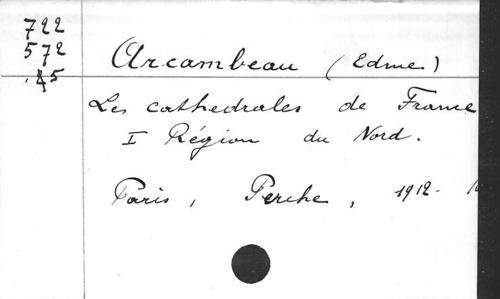 722
572
.45
Arcambeau (Edme)
Les cathedrales de France
I Région du Nord.
Paris, Perche, 1912-